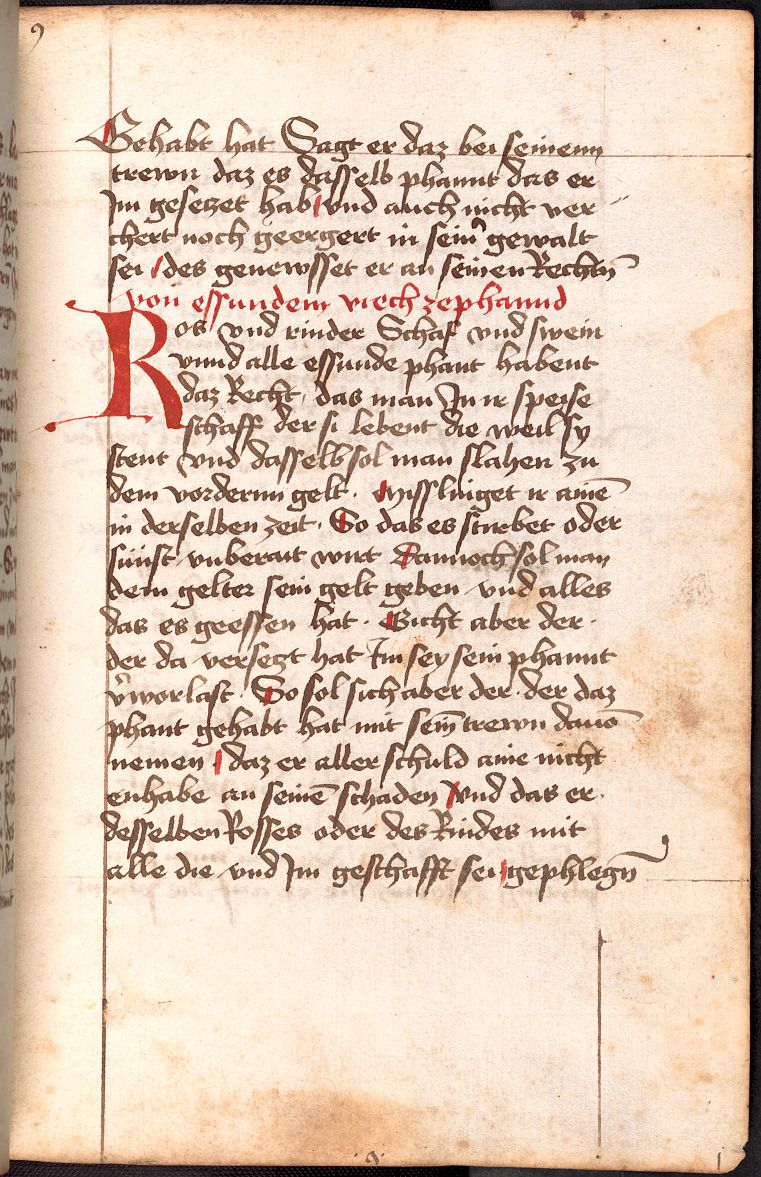 9
Gehabt hat Sagt er daz bei seinenn
trewn daz es dasselb phannt das er
Im geseczet hab vnd auch nicht ver
chert noch geergert in sein' gewalt
sei / des genewsset er an seinen Rechtn̄
von essundem viech ze phannd
Ros vnd rinder Schaf vnd swein
vnnd alle essunde phant habent
daz Recht, das man In ir speise
schaff der si lebent die weil sy
stent vnd dasselb sol man slahen zu
dem vordernn gelt. Misslinget ir ainē
in derselben zeit. So das es sturbet oder
sünst vnberait wirt Dannoch sol man
dem gelter sein gelt geben vnd alles
das es geessen hat. Gicht aber der.
der da verseczt hat Im sey sein phannt
v'worlast. So sol sich aber der. der daz
phant gehabt hat mit sein̄ trewn dauō
nemen / daz er aller schuld aine nicht
enhabe an seinē schaden Vnd das er.
desselben Rosses oder des Rindes mit
alle die vnd Im geschafft sei gephlegn̄
.9.